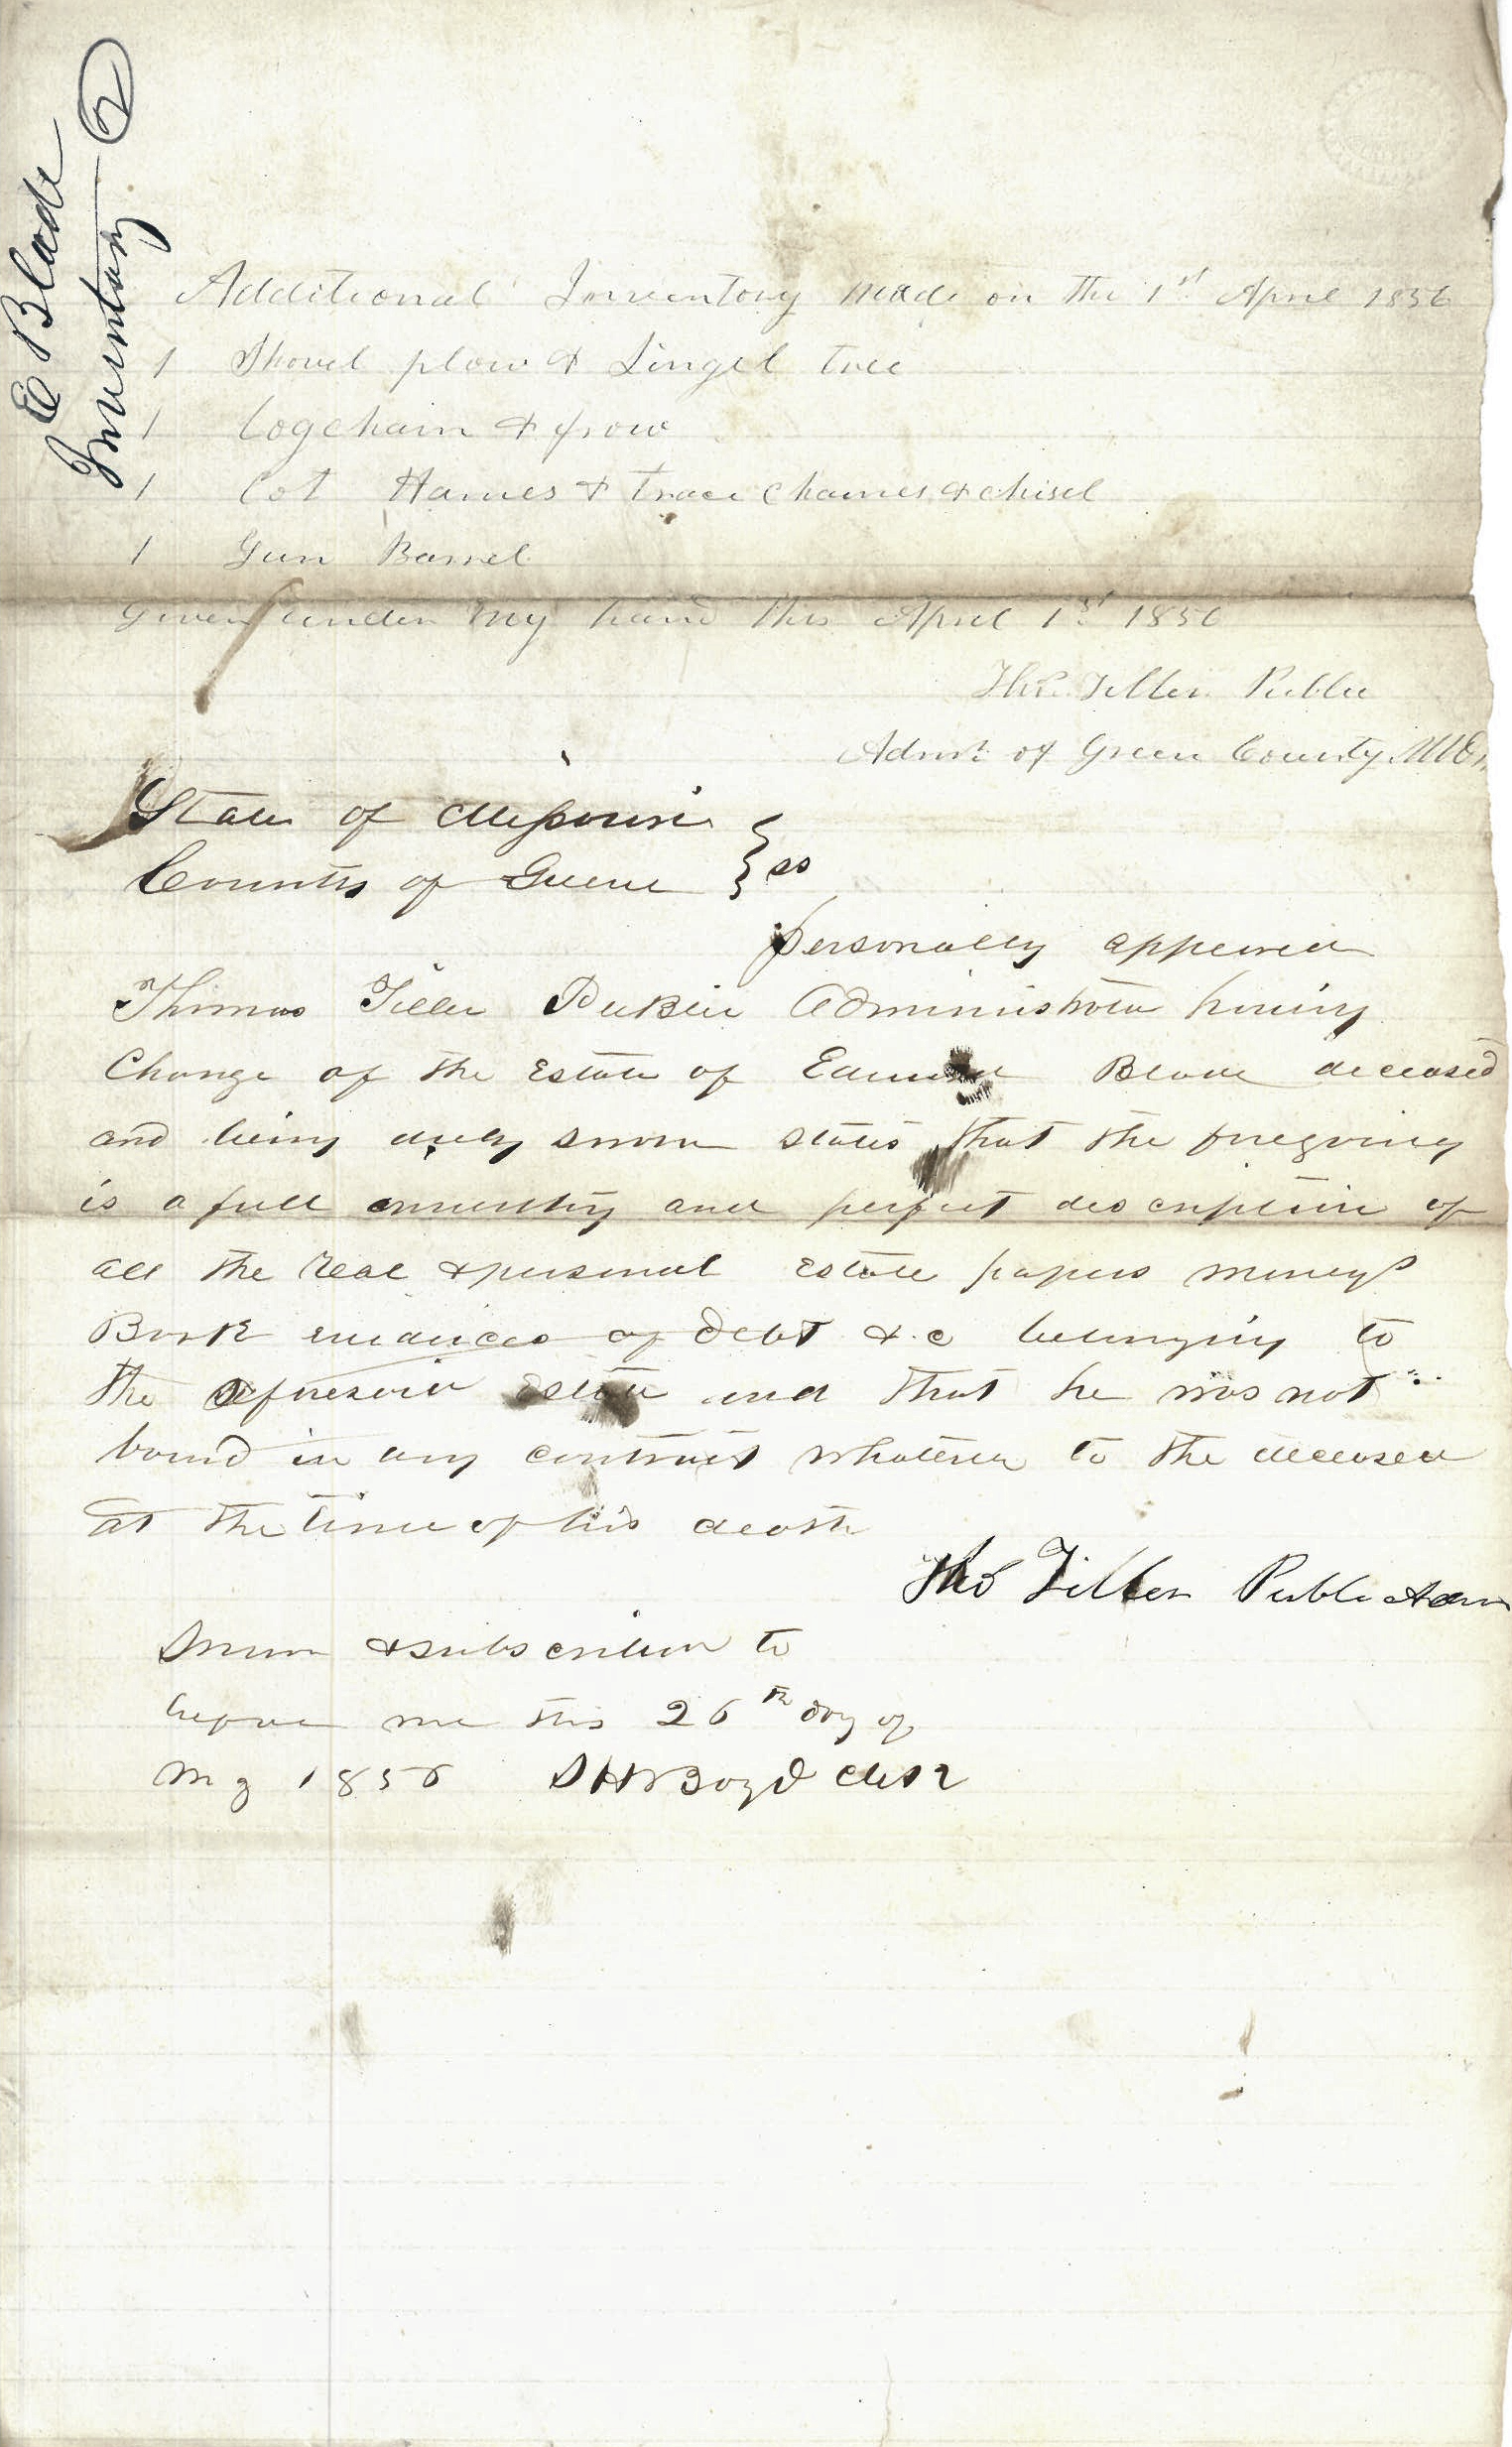 E Blade
Inventory 2
Additional Inventory made on the 1st April 1856
1 Shovel plow & Singel tree
1 Logchain & frow
1 Lot Hames & trace chaines & chisel
1 Gun Barrel
Given under my hand this April 1st 1856
Thos. Tiller Public
Admr. of Green County Mo
State of Missouri
County of Greene } ss
personally appeared
Thomas Tiller Public Administrator having
Charge of the Estate of Blade deceased
and being duly sworn states that the foregoing
is a full inventory and perfect description of
all the real & personal Estate papers moneys
Book evidences of debt &.c belonging to
the aforesaid Estate and that he was not
bound in any contract whatever to the deceased
at the time of his death
Thos Tiller Public Adm
Sworn & subscribed to
before me this 26th day of
1856 Boyd Clerk